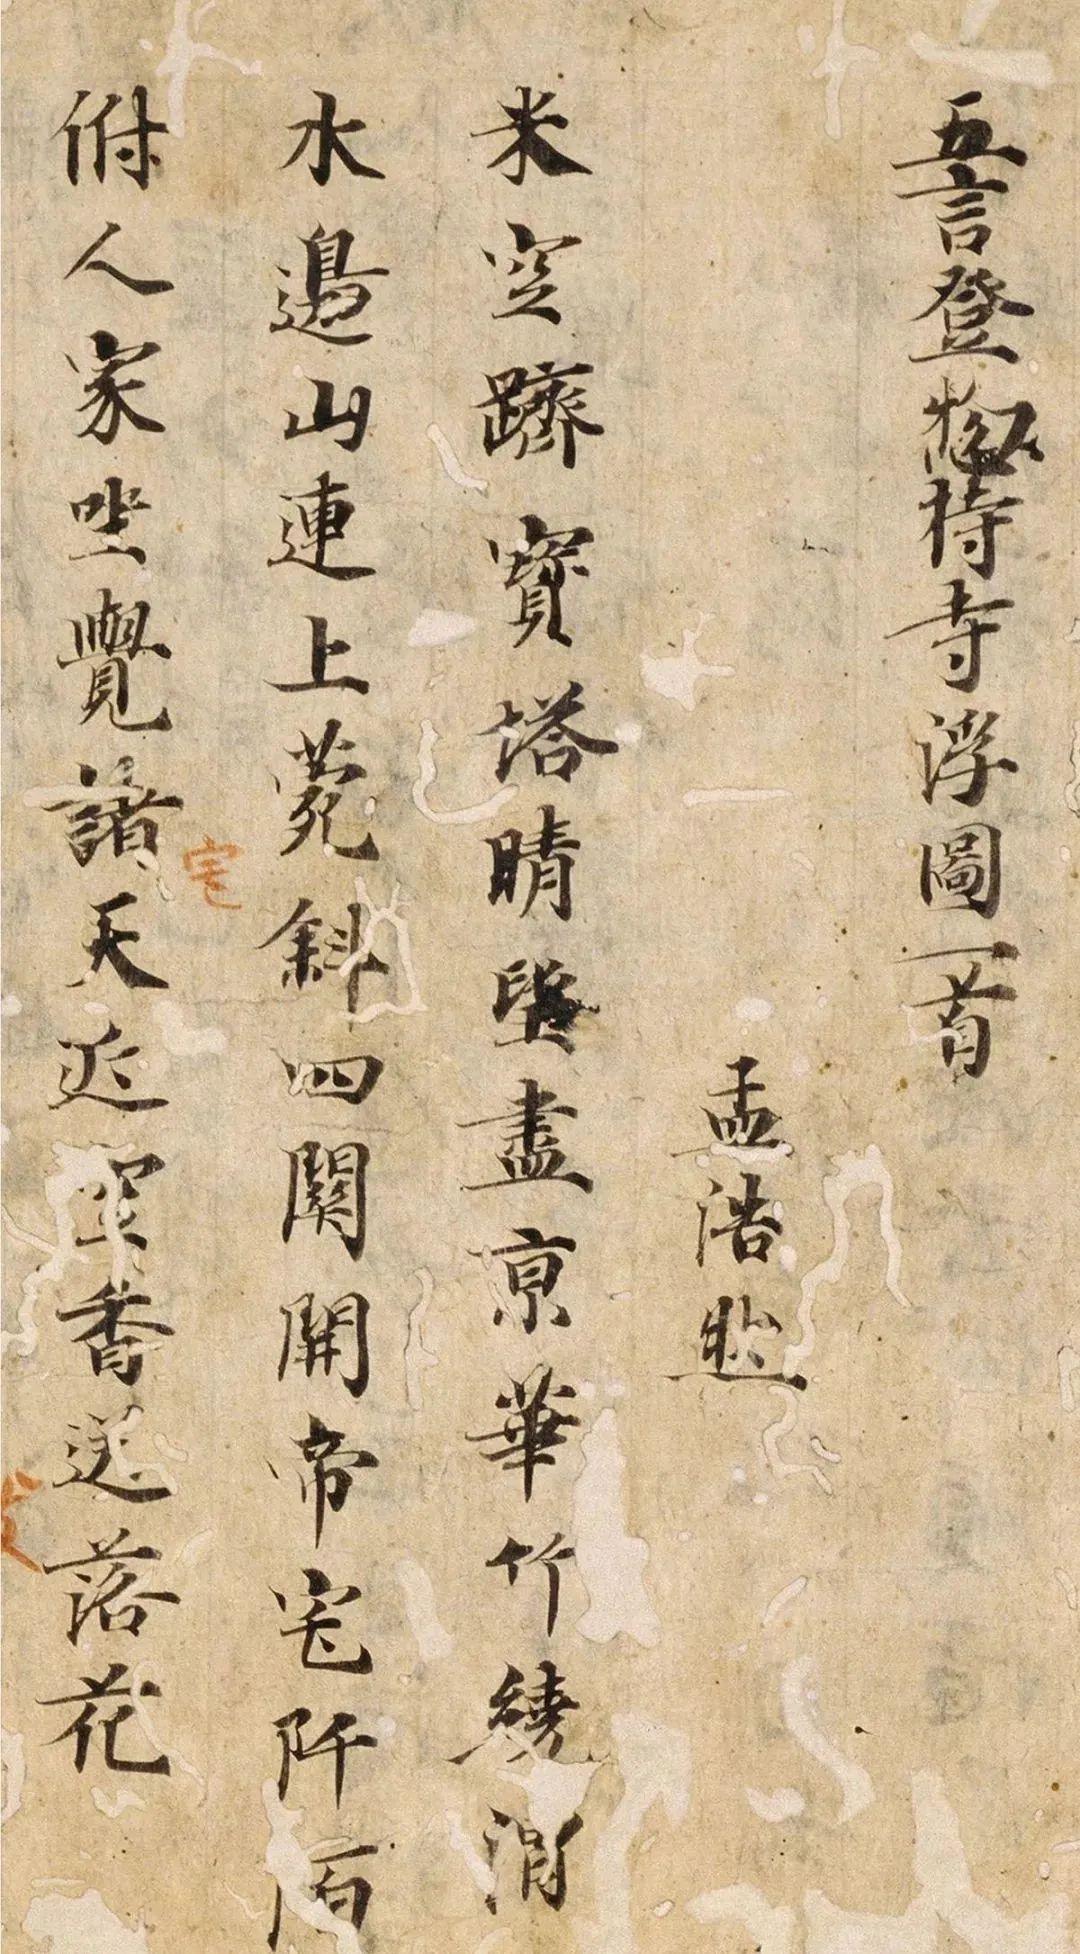 五言登惣持寺浮圖一首
孟浩然
米空躋寶塔晴望盡亰華竹繞渭
水邊山連上菀斜四關開帝宅阡陌
宅
俯人家坐覺諸天近空香送落花